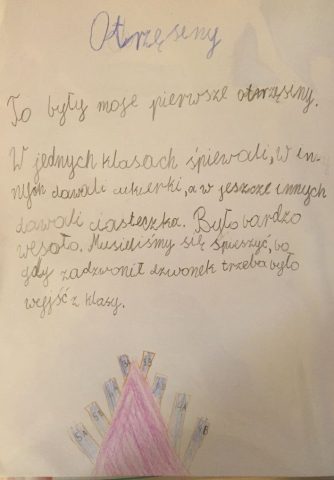 Otrzęsiny
To były moje pierwsze otrzęsiny.
W jednych klasach śpiewali, w in-
nych dawali cukierki, a w jeszcze innych
dawali ciasteczka. Było bardzo
wesoło. Musieliśmy się śpieszyć, bo
gdy zadzwonił dzwonek trzeba było
wyjść z klasy.
5A
4A
6B